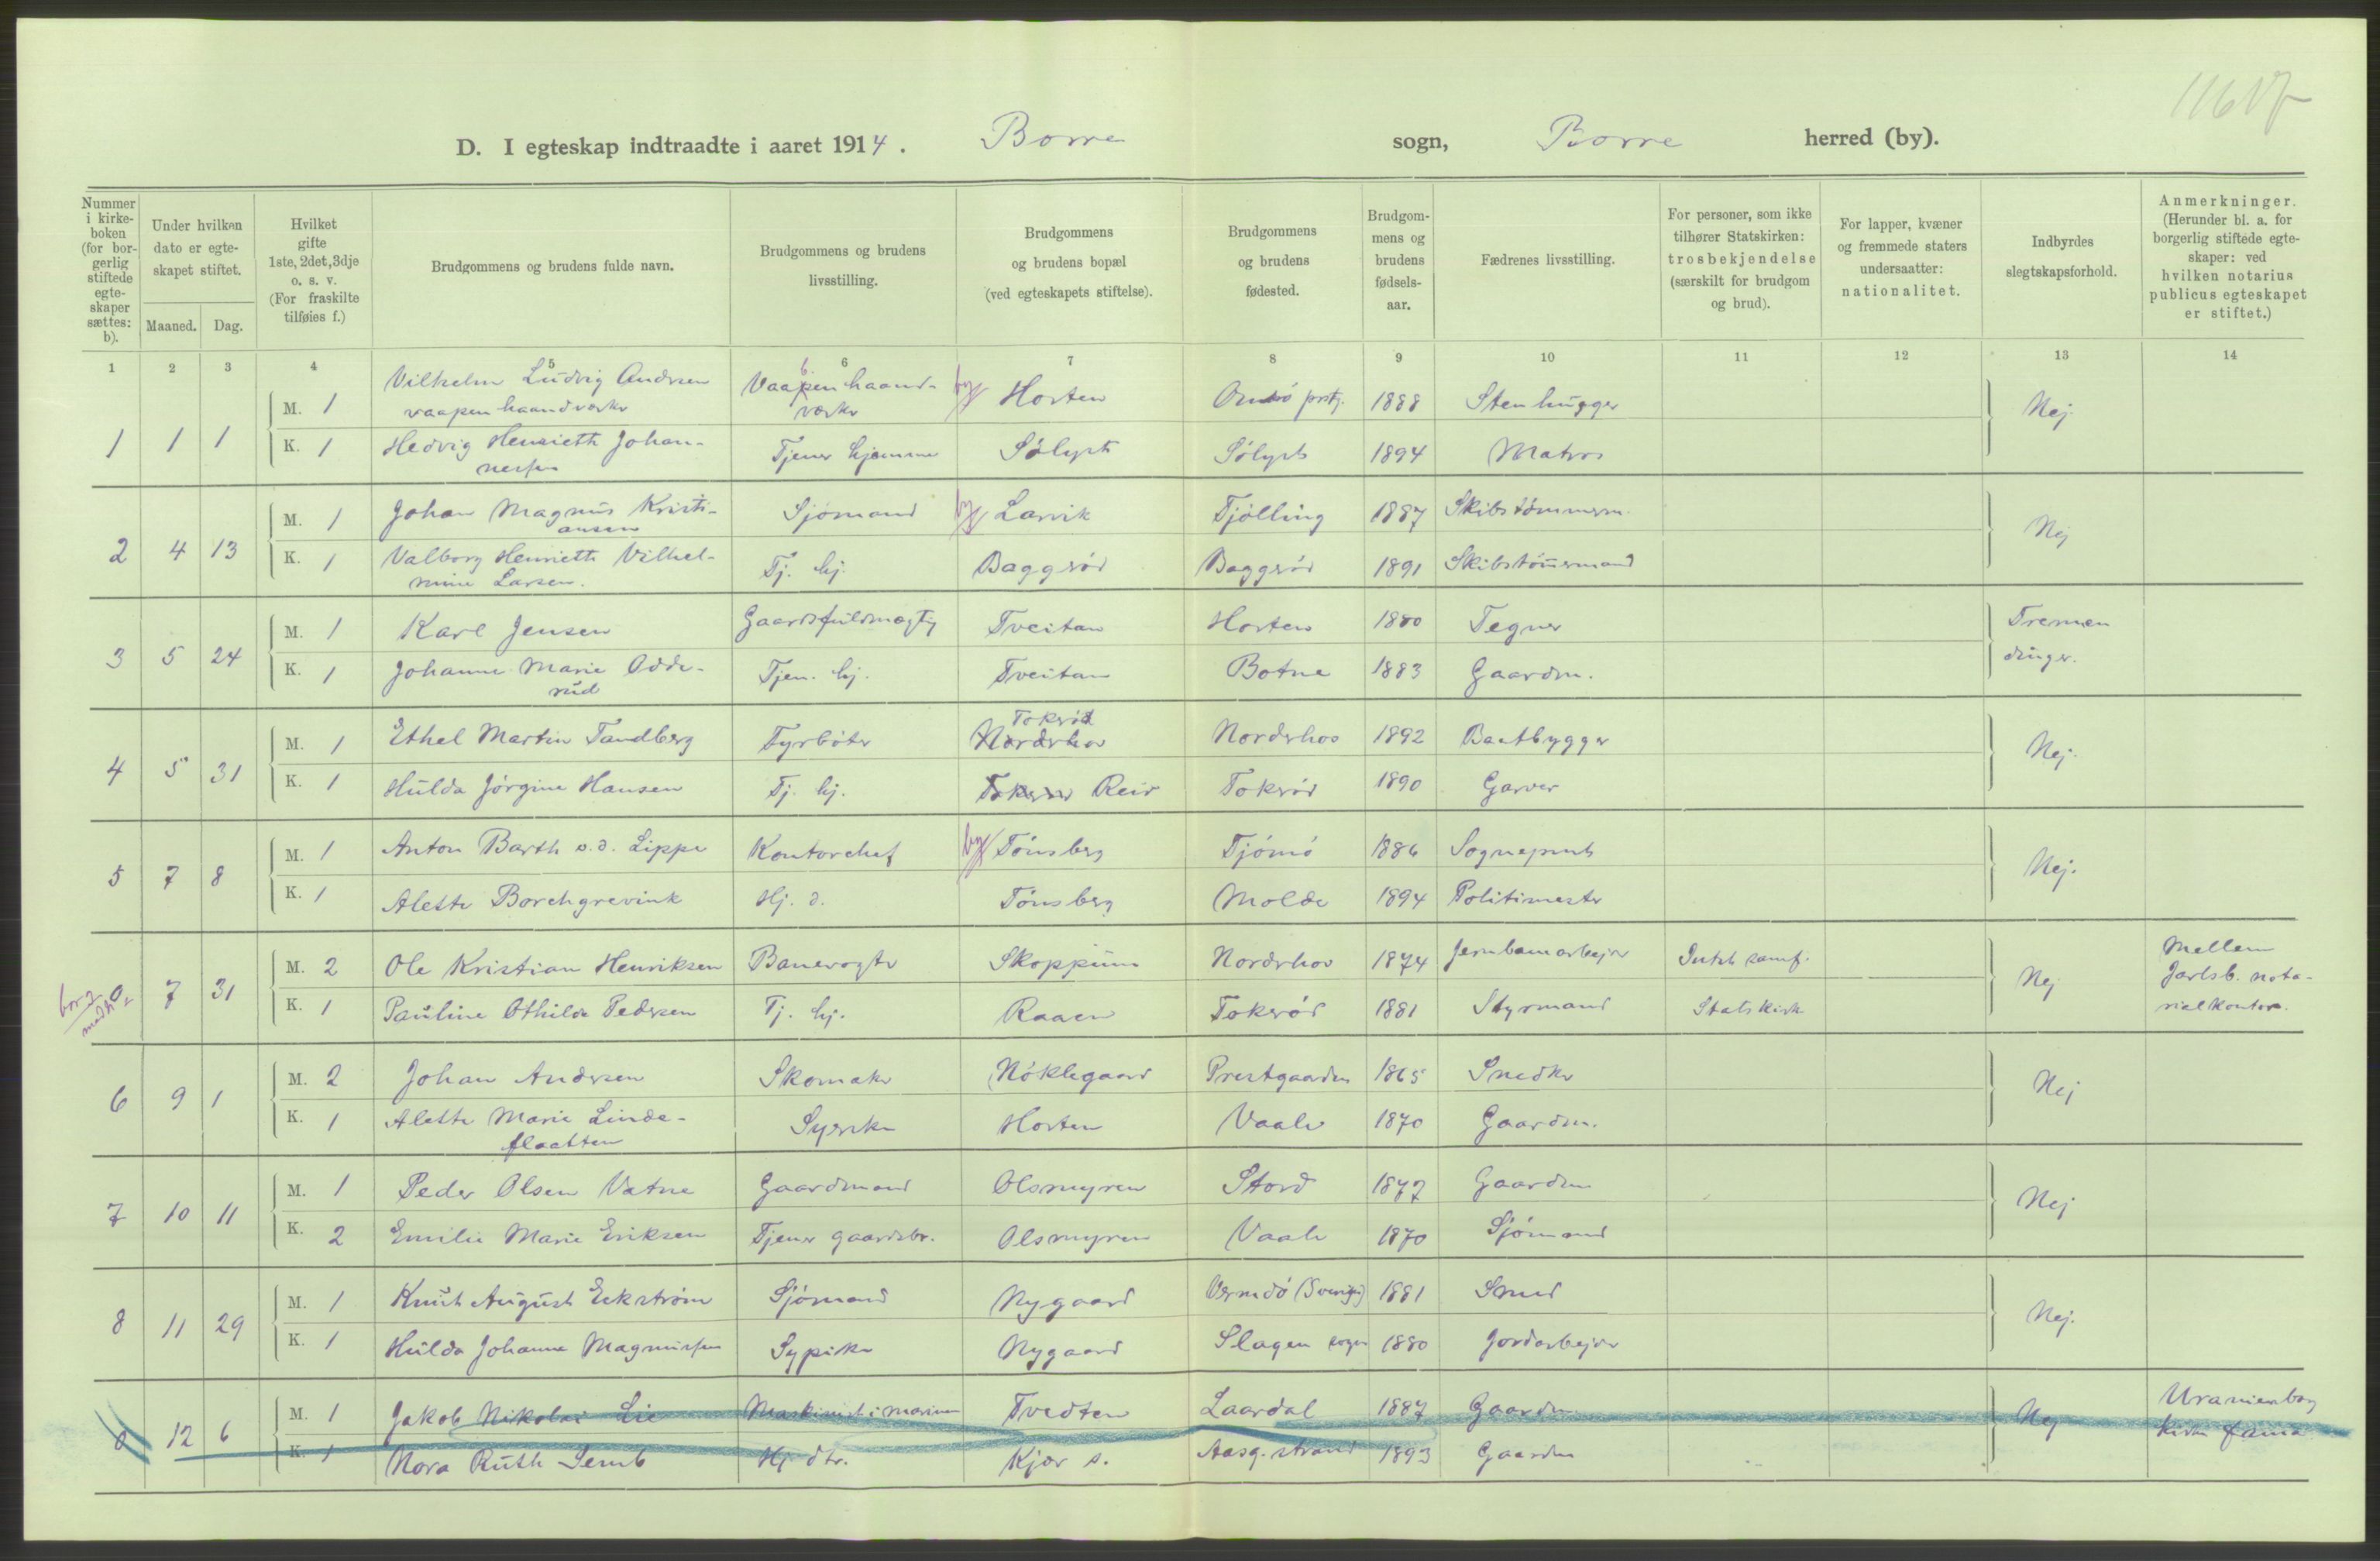 D. I egteskap indtraadte i aaret 1914. Borre sogn, Borre herred (by).
Nummer i kirkeboken (for borgerlig stiftede egteskaper sættes: b).
Under hvilken dato er egteskapet stiftet.
Maaned. Dag.
Hvilket gifte 1ste, 2det, 3dje o. s. v. (For fraskilte tilføies f.)
Brudgommens og brudens fulde navn.
Brudgommens og brudens livsstilling.
Brudgommens og brudens bopæl (ved egteskapets stiftelse).
Brudgommens og brudens fødested.
Brudgommens og brudens fødselsaar.
Fædrenes livsstilling.
For personer, som ikke tilhører Statskirken: trosbekjendelse (særskilt for brudgom og brud).
For lapper, kvæner og fremmede staters undersaatter: nationalitet.
Indbyrdes slegtskapsforhold.
Anmerkninger. (Herunder bl. a. for borgerlig stiftede egteskaper: ved hvilken notarius publicus egteskapet er stiftet.)
1 2 3 4 5 6 7 8 9 10 11 12 13 14
1 1 1
M. 1 Vilhelm Ludvig Andersen vaapenhaandverker Vaapenhaandverker by Horten 1888 Stenhugger Nej.
K. 1 Hedvig Henriette Johannessen Tjener hjemme Sölyst Sölyst 1894 Matros
2 4 13
M. 1 Johan Magnus Kristiansen Sjömand by Larvik Tjölling 1887 Skibstömmerm. Nej
K. 1 Valborg Henriette Vilhelmine Larsen. Tj. hj. Baggeröd Baggeröd 1891 Skibstömmermand
3 5 24
M. 1 Karl Jensen Gaardsfuldmægtig Tveitan Horten 1880 Tegner Tremendinger.
K. 1 Johanne Marie Odderud Tjen. hj. Tveitan Botne 1883 Gaardm.
4 5 31
M. 1 Ethel Martin Tandberg Fyrböter Nordrhov Tokröd Nordrhov 1892 Baatbygger Nej.
K. 1 Hulda Jörgine Hansen Tj. hj. Tokeröd Reir Tokröd 1890 Garver
5 7 8
M. 1 Anton Barth v.d. Lippe Kontorchef by Tönsberg Tjömö 1886 Sogneprest Nej.
K. 1 Alette Borchgrevink Hj. d. Tönsberg Molde 1894 Politimester
0 7 31
M. 2 Ole Kristian Henriksen Banevogter Skoppum Nordrhov 1874 Jernbanearbejder samf. Nej Mellem Jarlsb. notarialkontor.
K. 1 Pauline Othilde Pedersen Tj. hj. Raaen Tokeröd 1881 Styrmand Statskirk
6 9 1
M. 2 Johan Andersen Skomaker Nöklegaard Prestgaarden 1865 Snedker Nej
K. 1 Alette Marie Lindeflaatten Syerske Horten Vaale 1870 Gaardm.
7 10 11
M. 1 Peder Olsen Vatne Gaardmand Olsmyren Stord 1877 Gaardm Nej
K. 2 Emilie Marie Eriksen Tjener gaardsbr. Olsmyren Vaale 1870 Sjömand
8 11 29
M. 1 Knut August Eckström Sjömand Nygaard Vermdö (Sverige) 1881 Smed Nej.
K. 1 Hulda Johanne Magnussen Sypike Nygaard Slagen sogn 1880 Jordarbejder
0 12 6
M. 1 Jakob Nikolai Lie Maskinist i marinen Tvedten Laardal 1887 Gaardm Nej Uranienborg
K. 1 Nora Ruth Semb Hj dtr. Kjær s. Aasg.strand 1893 Gaardm